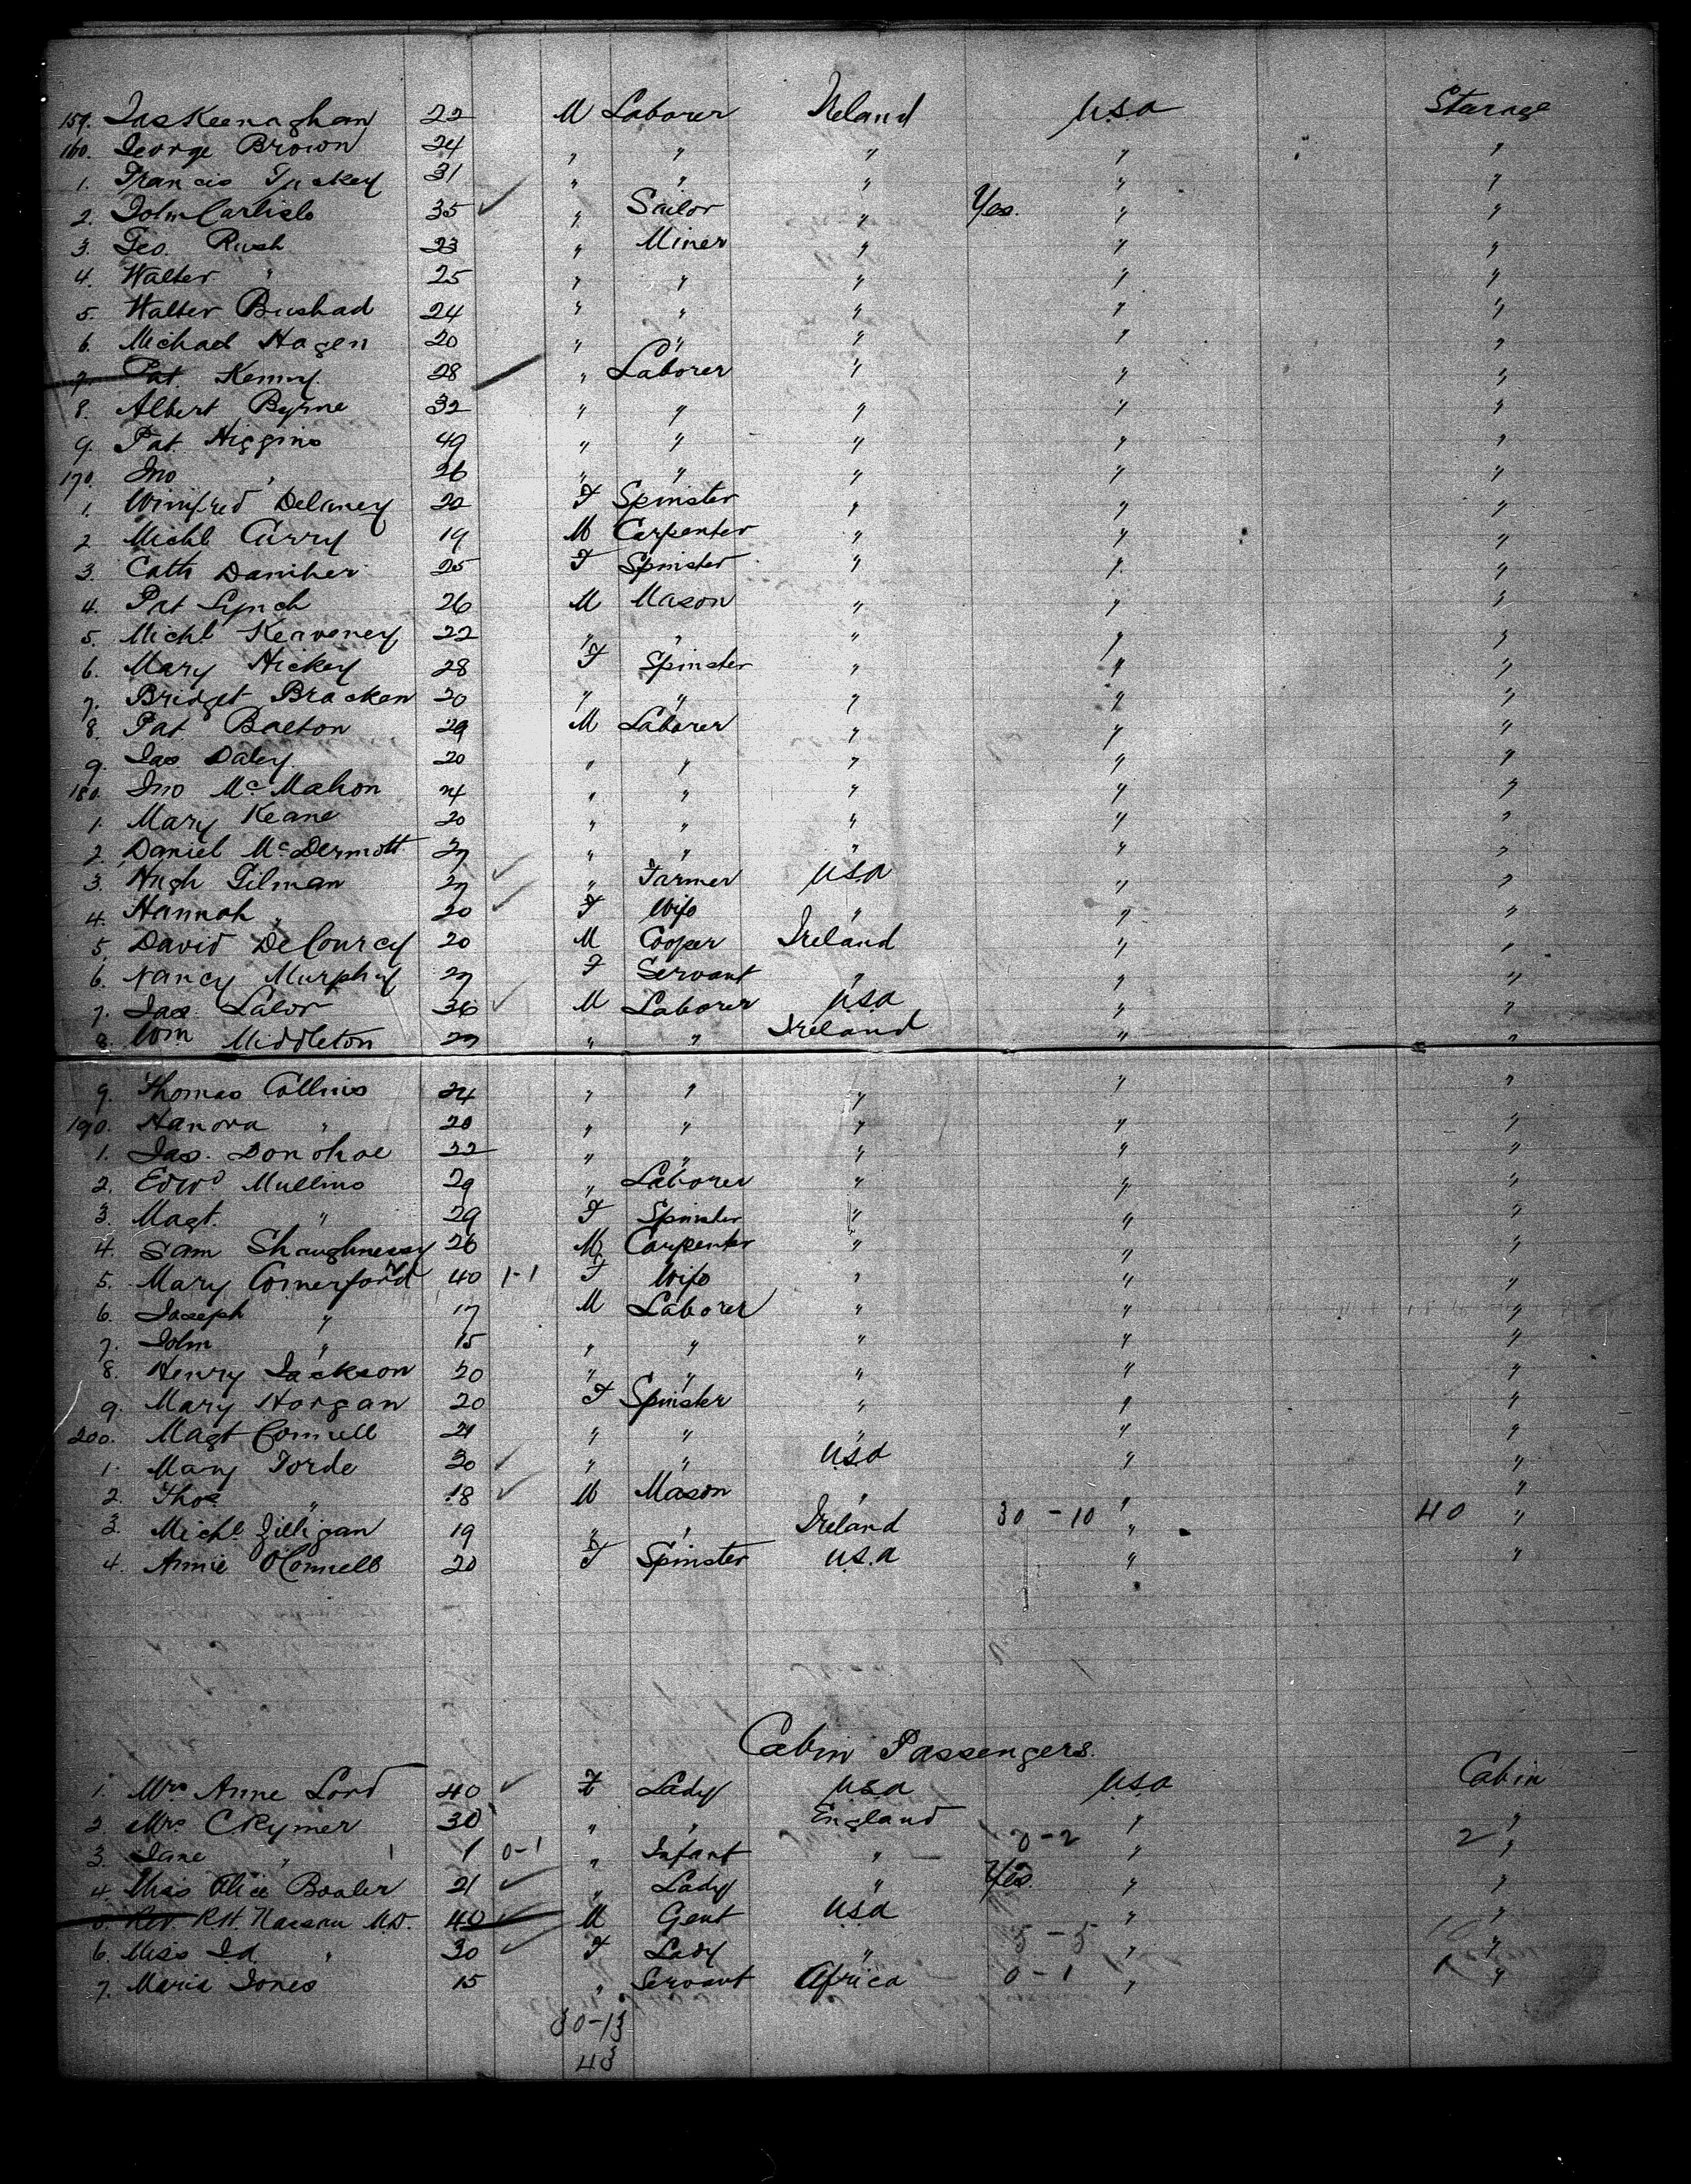 159. Jas Keenaghan 22 M Laborer Ireland USA Steerage
160. George Brown 24 " " " " "
1. Francis Tuckey 31 " " " " "
2. John Carlisle 35 ✓ " Sailor " Yes. " "
3. Geo. Rush 23 " Miner " " "
4. Walter " 25 " " " " "
5. Walter Bushad 24 " " " " "
6. Michael Hagen 20 " " " " "
7. Pat Kenny 28 " Laborer " " "
8. Albert Byrne 32 " " " " "
9. Pat Higgins 49 " " " " "
170. Jno " 26 " " " " "
1. Winifred Delaney 20 F Spinster " " "
2 Michl Curry 19 M Carpenter " " "
3. Cath Daniher 25 F Spinster " " "
4. Pat Lynch 26 M Mason " " "
5. Michl Keaveney 22 " " " " "
6. Mary Hickey 28 F Spinster " " "
7. Bridget Bracken 20 " " " " "
8. Pat Balton 29 M Laborer " " "
9. Jas Daley 20 " " " " "
180. Jno McMahon 24 " " " " "
1. Mary Keane 20 " " " " "
2. Daniel McDermott 27 " " " " "
3. Hugh Gilman 27 ✓ " Farmer USA " "
4. Hannah " 20 ✓ F Wife " " "
5. David DeCourcy 20 M Cooper Ireland " "
6. Nancy Murphy 27 F Servant " " "
7. Jas. Lalor 36 ✓ M Laborer USA " "
8. Wm Middleton 27 " " Ireland " "
9. Thomas Collins 24 " " " " "
190. Hanora " 20 " " " " "
1. Jas. Donohoe 22 " " " " "
2. Edwd Mullins 29 " Laborer " " "
3. Magt. " 29 F Spinster " " "
4. Sam Shaughnessy 26 M Carpenter " " "
5. Mary Comerford 40 1-1 F Wife " " "
6. Joseph " 17 M Laborer " " "
7. John " 15 " " " " "
8. Henry Jackson 20 " " " " "
9. Mary Horgan 20 F Spinster " " "
200. Magt Connell 21 " " " " "
1. Mary Forde 30 ✓ " " USA " "
2. Thos " 18 ✓ M Mason " " "
3. Michl Gilligan 19 " " Ireland 30-10 " 40 "
4. Annie OConnell 20 F Spinster USA " "
Cabin Passengers.
1. Mrs Anne Lord 40 ✓ F Lady USA USA Cabin
2 Mrs C Rymer 30 " " England " "
3. Jane " 1 1 0-1 " Infant " 0-2 " 2 "
4. Miss Alice Booler 21 ✓ " Lady " Yes. " "
5. Rev. R.H. Nassau M.D. 40 ✓ M Gent USA " "
6. Miss Id. " 30 ✓ F Lady " 5-5 " 10 "
7. Maria Jones 15 " Servant Africa 0-1 " 1 "
30-13
43